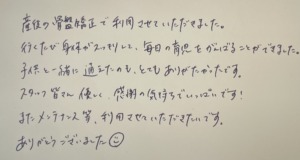 産後の骨盤矯正で利用させていただきました。
行くたび身体がスッキリして、毎日の育児をがんばることができました。
子供と一緒に通えたのも、とてもありがたかったです。
スタッフ皆さん優しく、感謝の気持ちでいっぱいです!
またメンテナンス等、利用させていただきたいです。
ありがとうございました